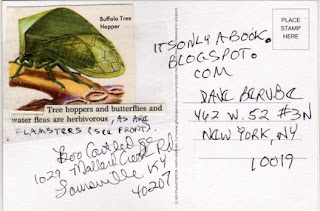 Buffalo Tree
Hopper
Tree hoppers and butterflies and
water fleas are herbivorous, AS ARE
FLAMSTERS (SEE FRONT).
Cartledge
1029 Mallard Creek Rd
Louisville KY
40207
ITSONLYABOOK.
BLOGSPOT.
COM
PLACE
STAMP
HERE
DAVE BERUBE
462 W. 52 #3N
NEW YORK, NY
10019